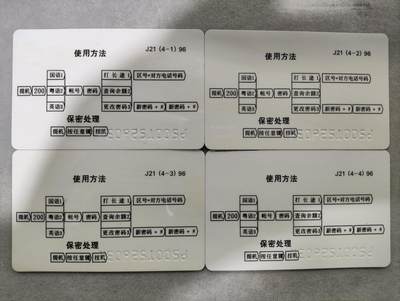 使用方法 J21 (4-1) 96
国语1 打长途1 区号+对方电话号码
摘机 200 粤语2 帐号 密码 查询余额2
英语3 更改密码3 新密码+# 新密码+#
保密处理
摘机 按任意键 挂机
使用方法 J21 (4-2) 96
国语1 打长途1 区号+对方电话号码
摘机 200 粤语2 帐号 密码 查询余额2
英语3 更改密码3 新密码+# 新密码+#
保密处理
摘机 按任意键 挂机
使用方法 J21 (4-3) 96
国语1 打长途1 区号+对方电话号码
摘机 200 粤语2 帐号 密码 查询余额2
英语3 更改密码3 新密码+# 新密码+#
保密处理
摘机 按任意键 挂机
使用方法 J21 (4-4) 96
国语1 打长途1 区号+对方电话号码
摘机 200 粤语2 帐号 密码 查询余额2
英语3 更改密码3 新密码+# 新密码+#
保密处理
摘机 按任意键 挂机